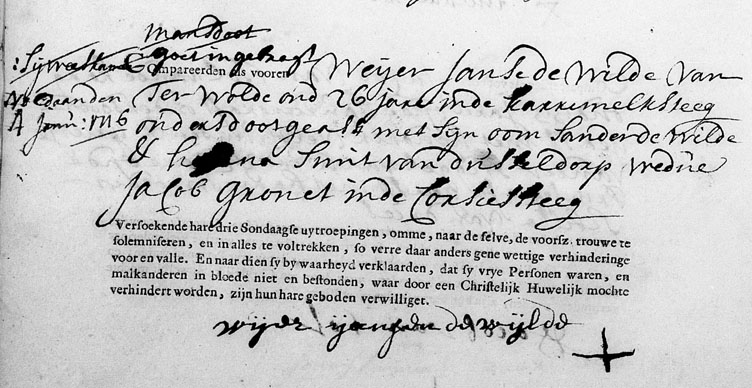 mans doot
goet ingebragt
Compareerden als vooren Weijer Janse de Wilde van
Ter Wolde oud 26 jare inde karremelksteeg
ouders doot geast met Sijn oom Sander de Wilde
& helena Smit van dusseldorp Wedue
Jacob Gronet inde Corsiesteeg
Versoekende hare drie Sondaagse uytroepingen, omme, naar de selve, de voorsz. trouwe te
solemniseren, en in alles te voltrekken, so verre daar anders gene wettige verhinderinge
voor en valle. En naar dien sy by waarheyd verklaarden, dat sy vrye Personen waren, en
malkanderen in bloede niet en bestonden, waar door een Christelijk Huwelijk mochte
verhindert worden, zijn hun hare geboden verwilliget.
wijer jansen de wijlde